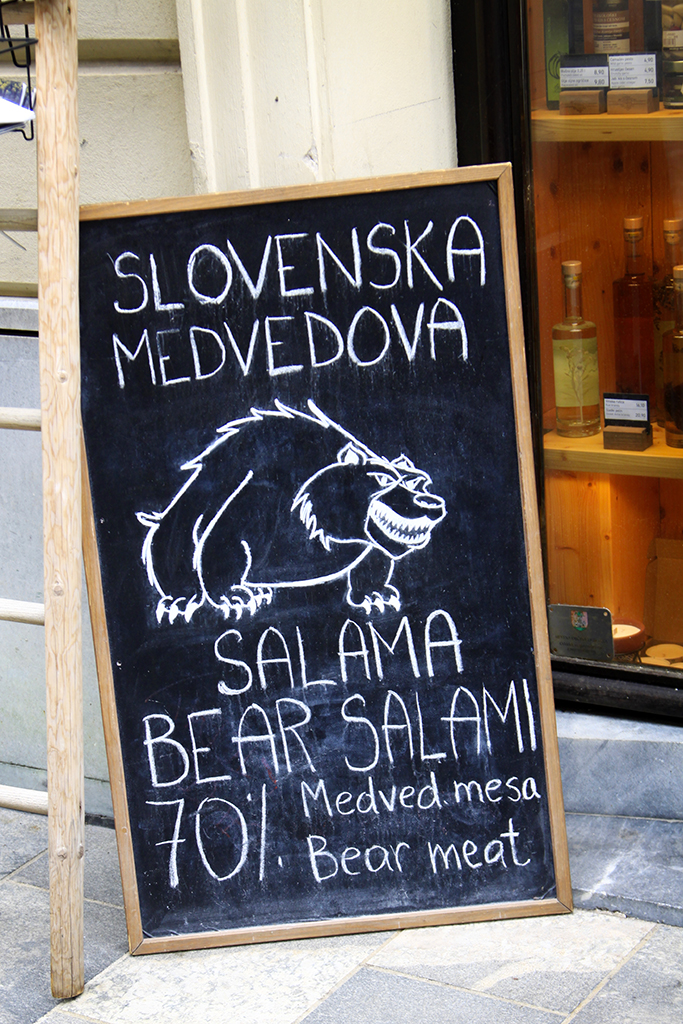 SLOVENSKA
MEDVEDOVA
SALAMA
BEAR SALAMI
70% Medved. mesa
Bear meat